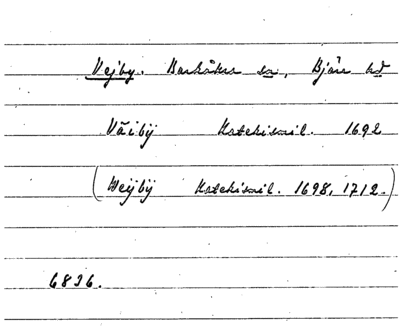 Vejby. Barkåkra sn, Bjäre hd
Väibÿ Katekismil. 1692
(Weÿbÿ Katekismil. 1698, 1712.)
6836.